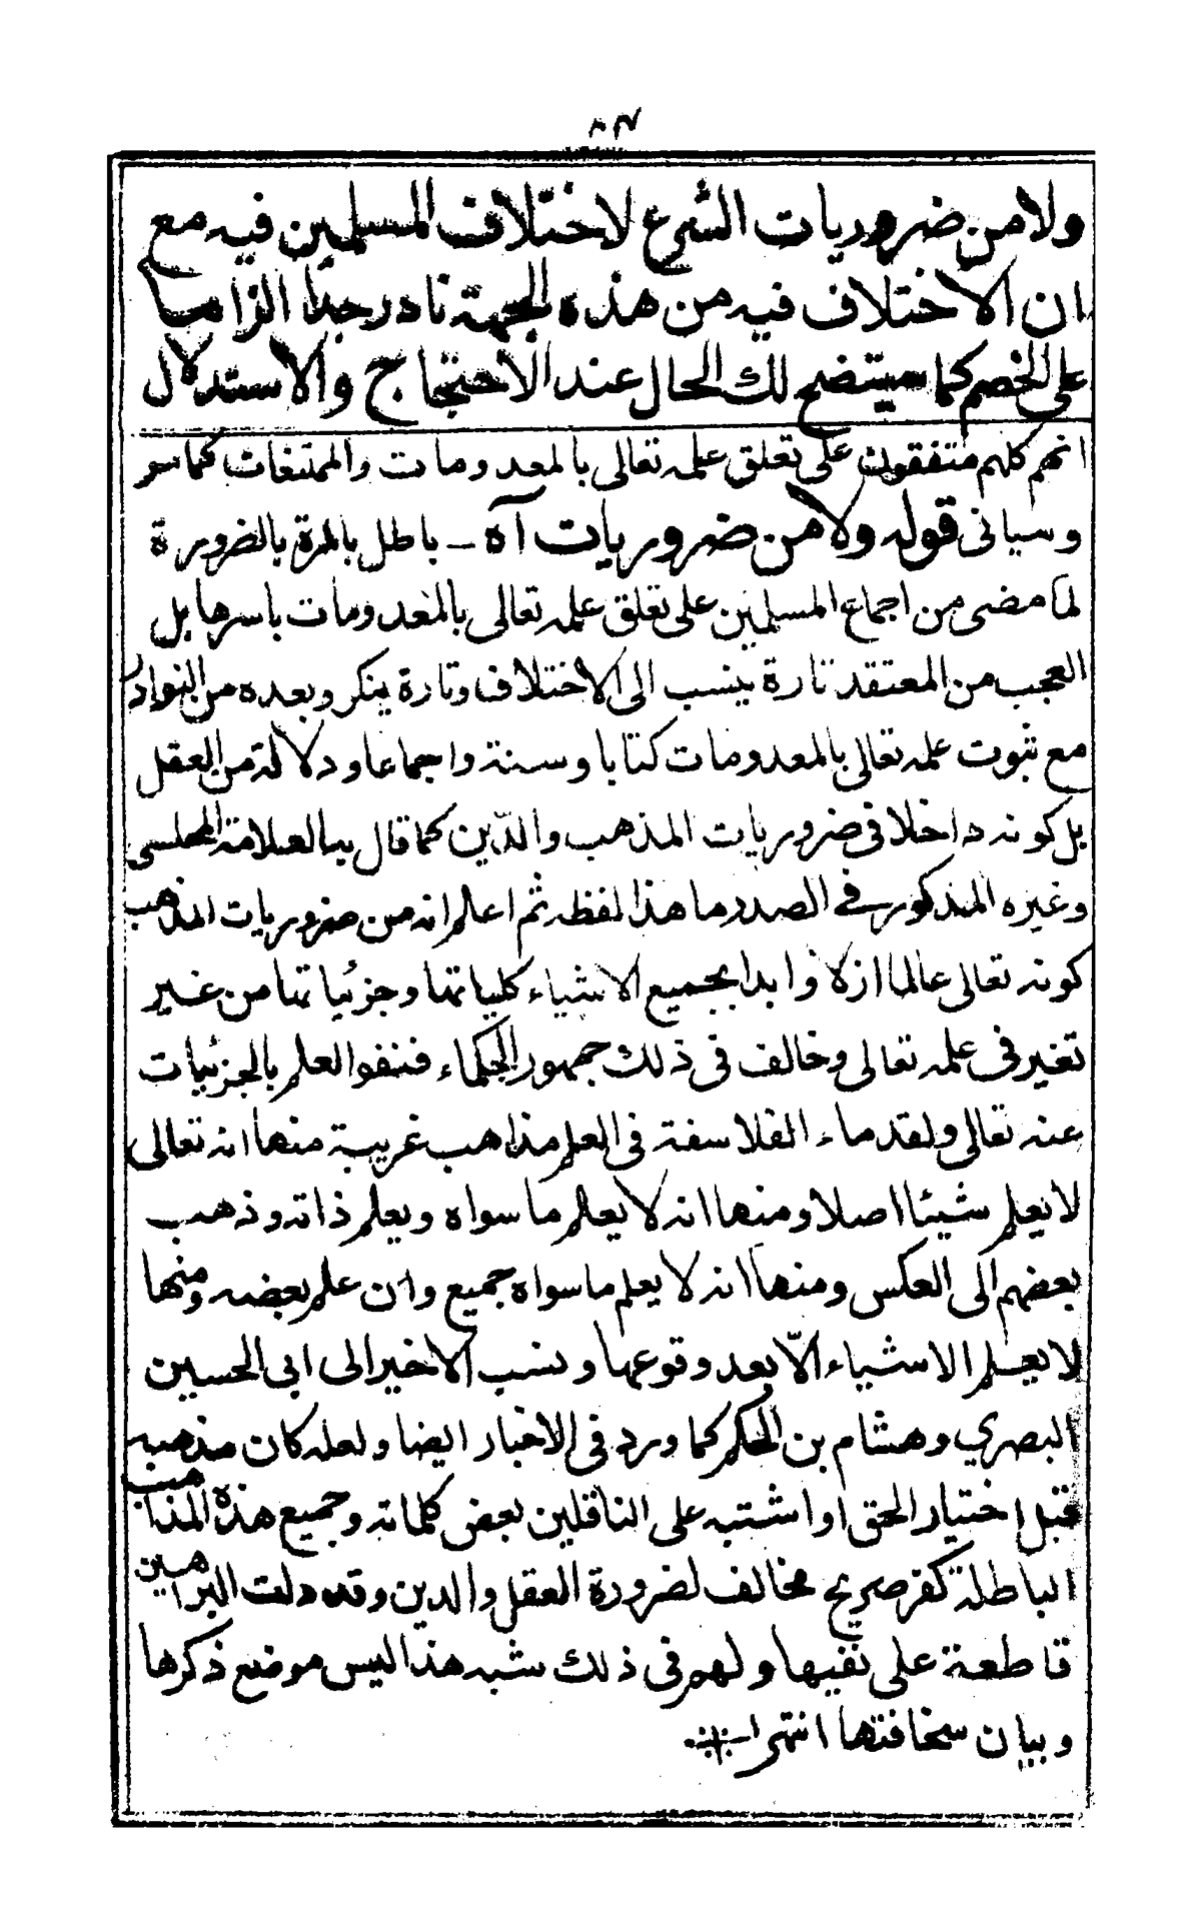 ولا من ضروريات الشرع لاختلاف المسلمين فيه مع
ان الاختلاف فيه من هذه الجهة نادر جدا الزاما
على الخصم كما سيتضح لك الحال عند الاحتجاج والاستدلال
انهم كلهم متفقون على تعلق علمه تعالى بالمعدومات والممتنعات كما مر
وسياتى قوله ولا من ضروريات آه ـ باطل بالمرة بالضرورة
لما مضى من اجماع المسلمين على تعلق علمه تعالى بالمعدومات باسرها بل
العجب من المعتقد تارة ينسب الى الاختلاف وتارة ينكر وبعده من النوادر
مع ثبوت علمه تعالى بالمعدومات كتابا وسنة واجماعا ودلالة من العقل
بل كونه داخلا فى ضروريات المذهب والدّين كما قال به العلامة المجلسى
وغيره المذكور فى الصدر ما هذا لفظه ثم اعلم انه من ضروريات المذهب
كونه تعالى عالما ازلا وابدا بجميع الاشياء كلياتها وجزئياتها من غير
تغير فى علمه تعالى وخالف فى ذلك جمهور الحكماء فنفوا العلم بالجزئيات
عنه تعالى ولقدماء الفلاسفة فى العلم مذاهب غريبة منها انه تعالى
لا يعلم شيئا اصلا ومنها انه لا يعلم ما سواه ويعلم ذاته وذهب
بعضهم الى العكس ومنها انه لا يعلم ما سواه جميع وان علم بعضه ومنها
لا يعلم الاشياء الّا بعد وقوعها ونسب الاخير الى ابى الحسين
البصري وهشام بن الحكم كما ورد فى الاخبار ايضا ولعله كان مذهبه
قبل اختيار الحق او اشتبه على الناقلين بعض كلماته وجميع هذه المذاهب
الباطلة كفر صريح مخالف لضرورة العقل والدين وقد دلت البراهين
قاطعة على نفيها ولهم فى ذلك شبه هذا ليس موضع ذكرها
وبيان سخافتها انتهى